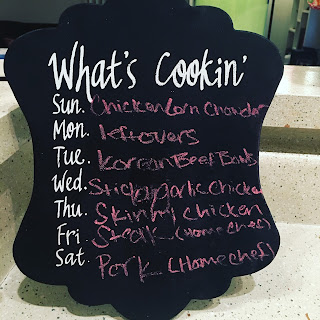 What's Cookin'
Sun. Chicken Corn Chowder
Mon. leftovers
Tue. Korean Beef Bowls
Wed. Sticky garlic Chicken
Thu. Skinny chicken
Fri Steak (Home Chef)
Sat. Pork (Homechef)